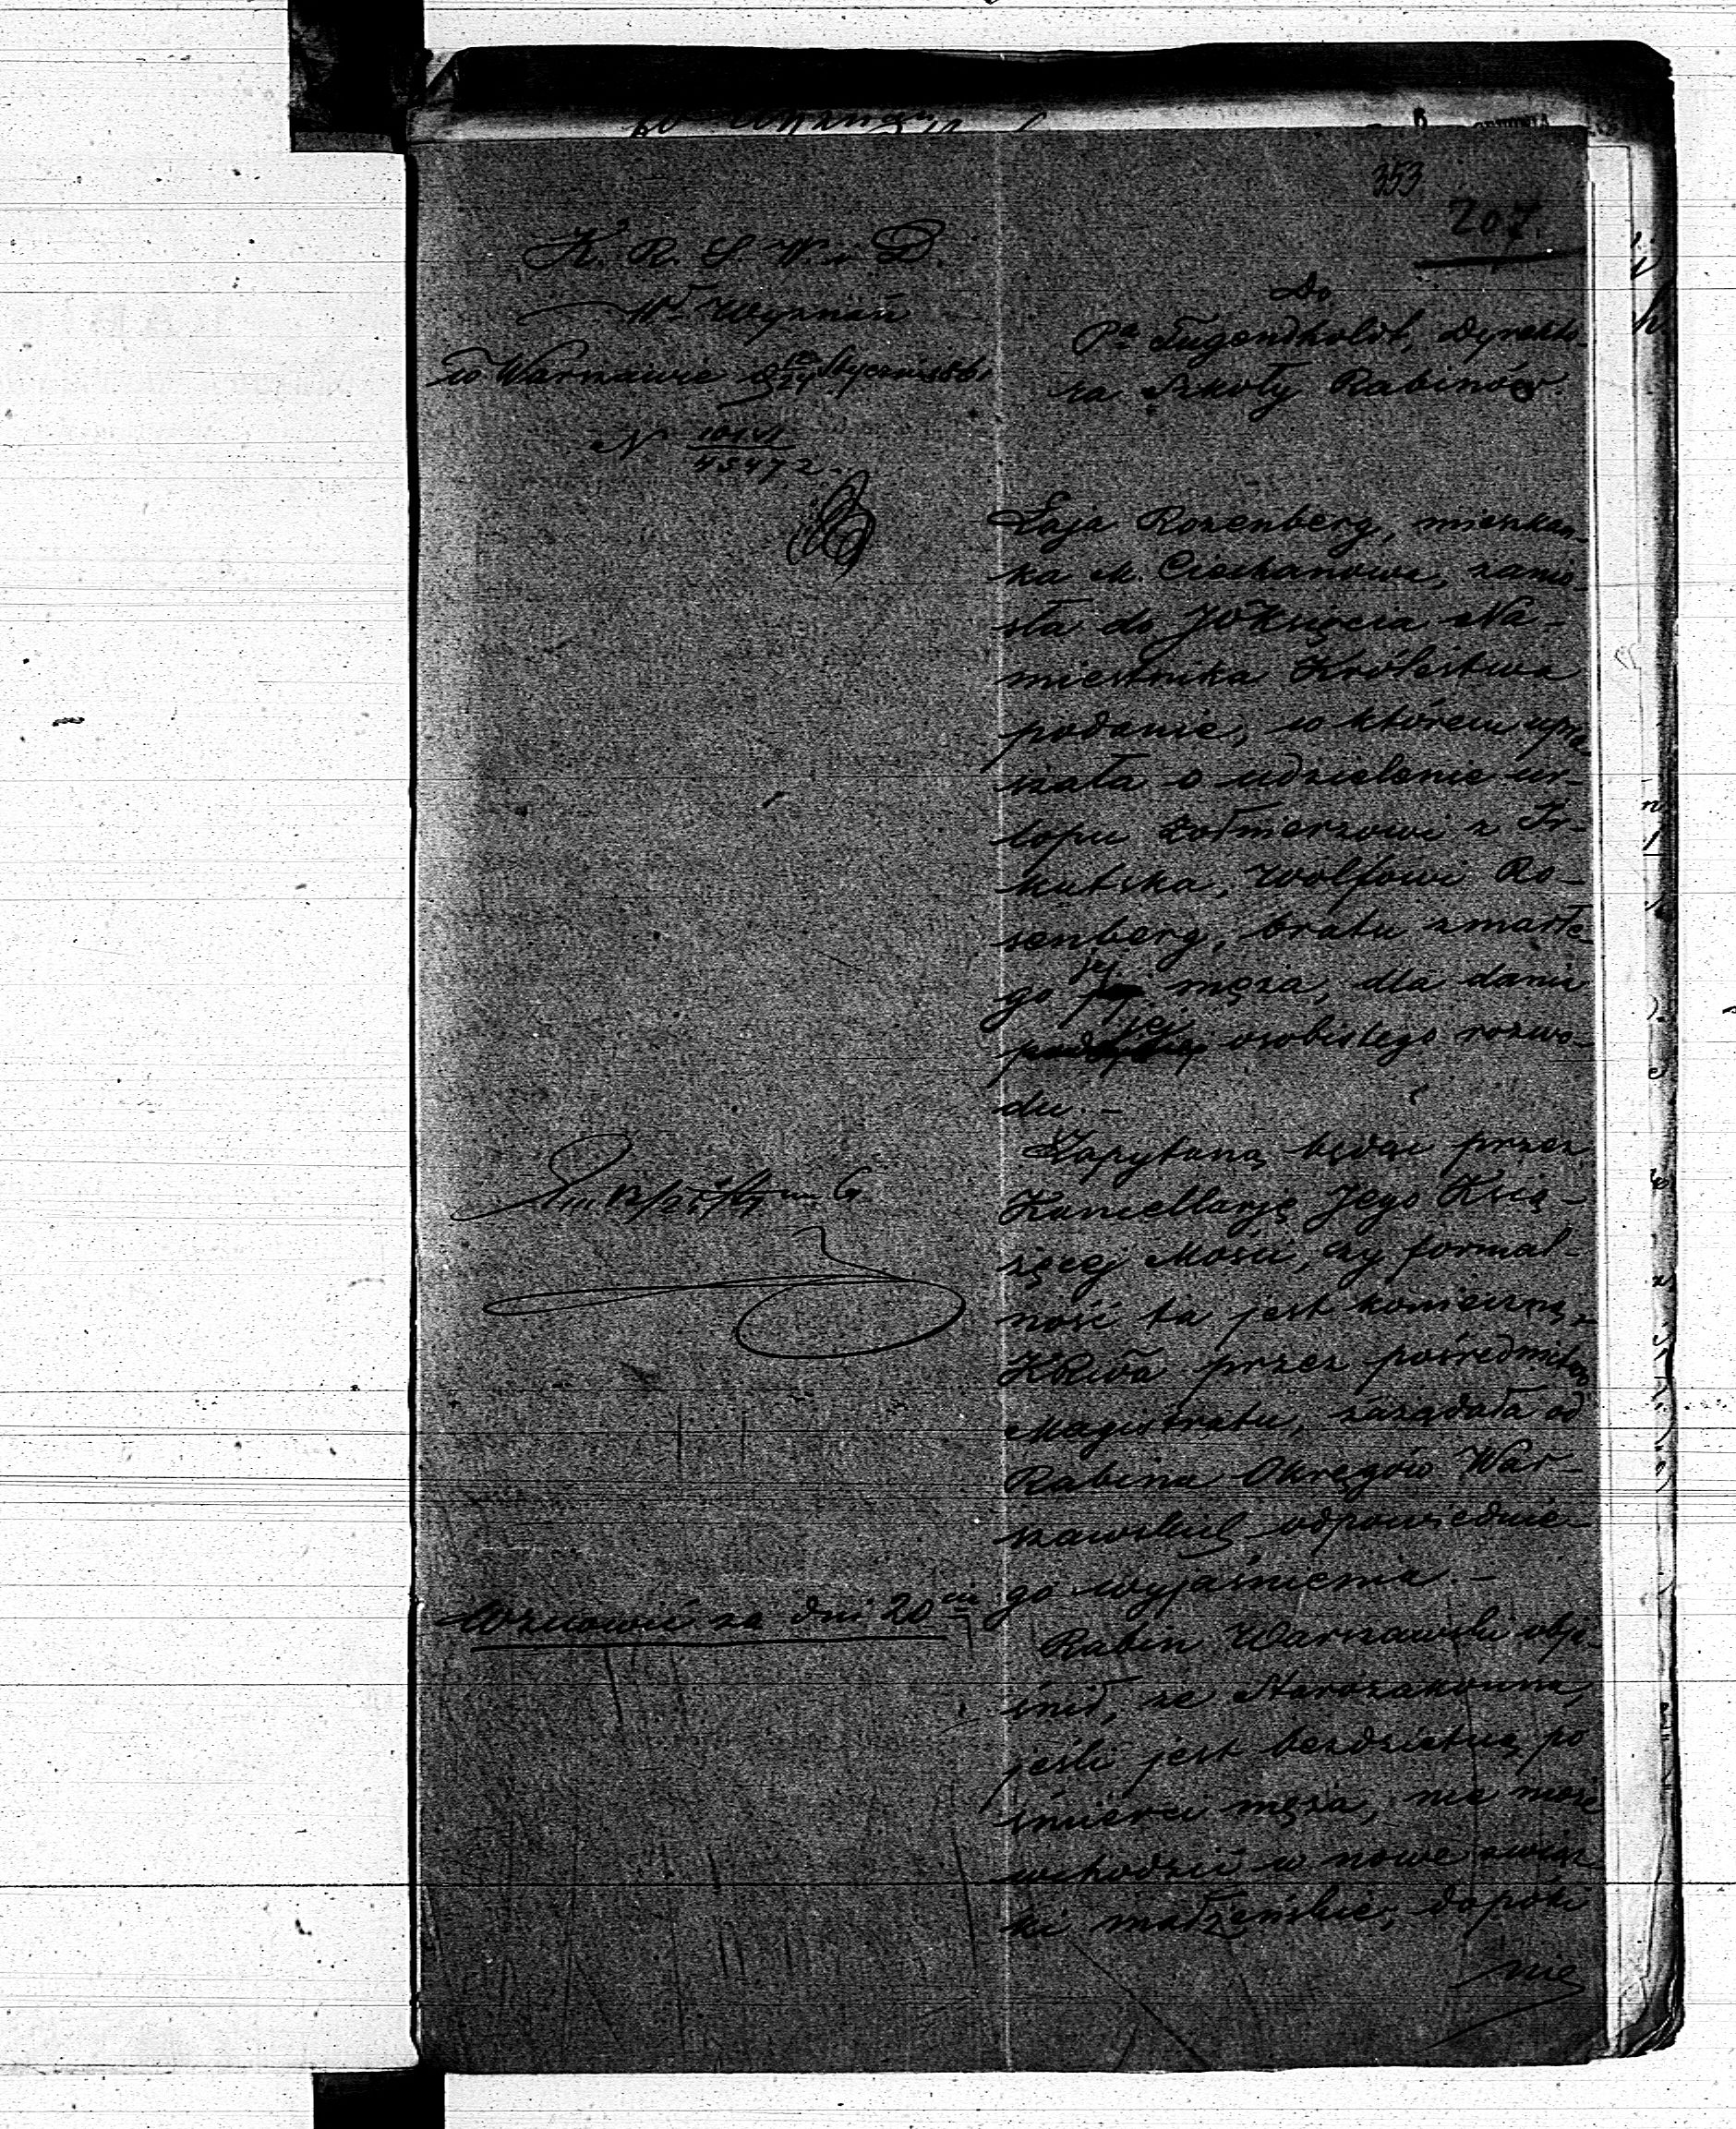 353
207.
K. R. S. W. i D.
Wł Wyznań
w Warszawie d 12/24 Stycznia 1861
N 45472.
Do
Pa Tugendholdt, Dyrekto-
ra Szkoły Rabinów.
Łaja Rozenberg, mieszkan-
ka M. Ciechanowa, zanio-
sła do JO Księcia Na-
miestnika Królestwa
podanie, w którem upra
szała o udzielenie ur-
lopu żołnierzowi z Ir-
kutska, Wolfowi Ro-
senberg, bratu zmarłe-
go jej męża, dla dania
jej osobistego rozwo-
du. -
Zapytaną będąc przez
Kancellarję Jego Ksią-
żęcej Mości, czy formal-
ność ta jest konieczną,
KRwa przez pośrednictwo
Magistratu, zażądała od
Rabina Okręgów War-
szawskich odpowiednie-
go wyjaśnienia -
Wznowić za dni 20
Rabin Warszawski obja-
śnił, że Starozakonna,
jeśli jest bezdzietną po
śmierci męża, nie może
wchodzić w nowe związ
ki małżeńskie, dopóki
nie